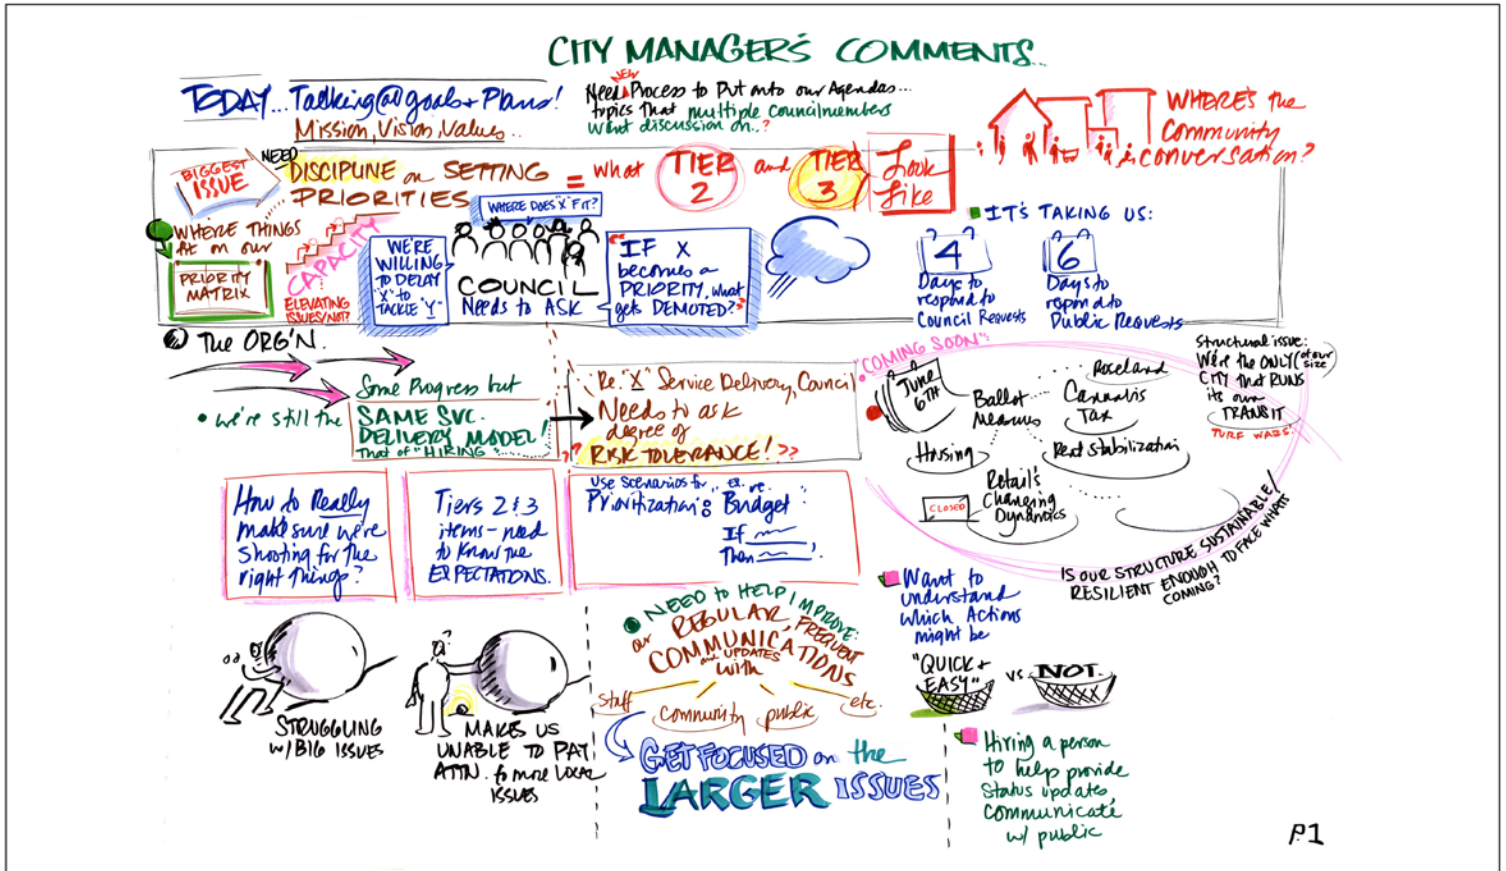 CITY MANAGER'S COMMENTS...
TODAY... Talking @ goals + Plans!
Mission, Vision, Values..
NEW
Need Process to Put onto our Agendas...
topics That multiple councilmembers
want discussion on..?
WHERE'S the
Community
conversation?
BIGGEST
ISSUE
NEED
DISCIPLINE on SETTING
PRIORITIES
= what
TIER
2
and
TIER
3
Look
Like
WHERE THINGS
ARE on our
PRIORITY
MATRIX
CAPACITY
ELEVATING
ISSUES/NOT?
WE'RE
WILLING
TO DELAY
"X" to
TACKLE "Y"
WHERE DOES "X" FIT?
COUNCIL
Needs to ASK
"IF X
becomes a
PRIORITY, what
gets DEMOTED?"
IT'S TAKING US:
4
Days to
respond to
Council Requests
6
Days to
respond to
Public Requests
The ORG'N.
Some Progress but
• we're still the
SAME SVC.
DELIVERY MODEL!
That of "HIRING"......
Re. "X" Service Delivery, Council
Needs to ask
degree of
RISK TOLERANCE!
??
"COMING SOON":
JUNE
6TH
Ballot
Measures
Roseland
Cannabis
Tax
Rent Stabilization
Housing
CLOSED
Retail's
Changing
Dynamics
Structural issue:
We're the ONLY (of our size)
CITY that RUNS
its own
TRANSIT
TURF WARS!
IS OUR STRUCTURE SUSTAINABLE/
RESILIENT ENOUGH TO FACE WHATS
COMING?
How to Really
make sure we're
Shooting for the
right Things?
Tiers 2 & 3
items - need
to Know the
EXPECTATIONS.
Use Scenarios for
Prioritization:
ex. re.
Budget
If
Then
STRUGGLING
w/BIG ISSUES
MAKES US
UNABLE TO PAY
ATTN. to more LOCAL
ISSUES
NEED to HELP IMPROVE:
our REGULAR, FREQUENT
COMMUNICATIONS
and UPDATES
with
Staff
Community
public
etc.
GET FOCUSED on the
LARGER ISSUES
Want to
understand
which Actions
might be
"QUICK +
EASY"
vs.
NOT.
Hiring a person
to help provide
Status updates,
Communicate
w/ public
P.1